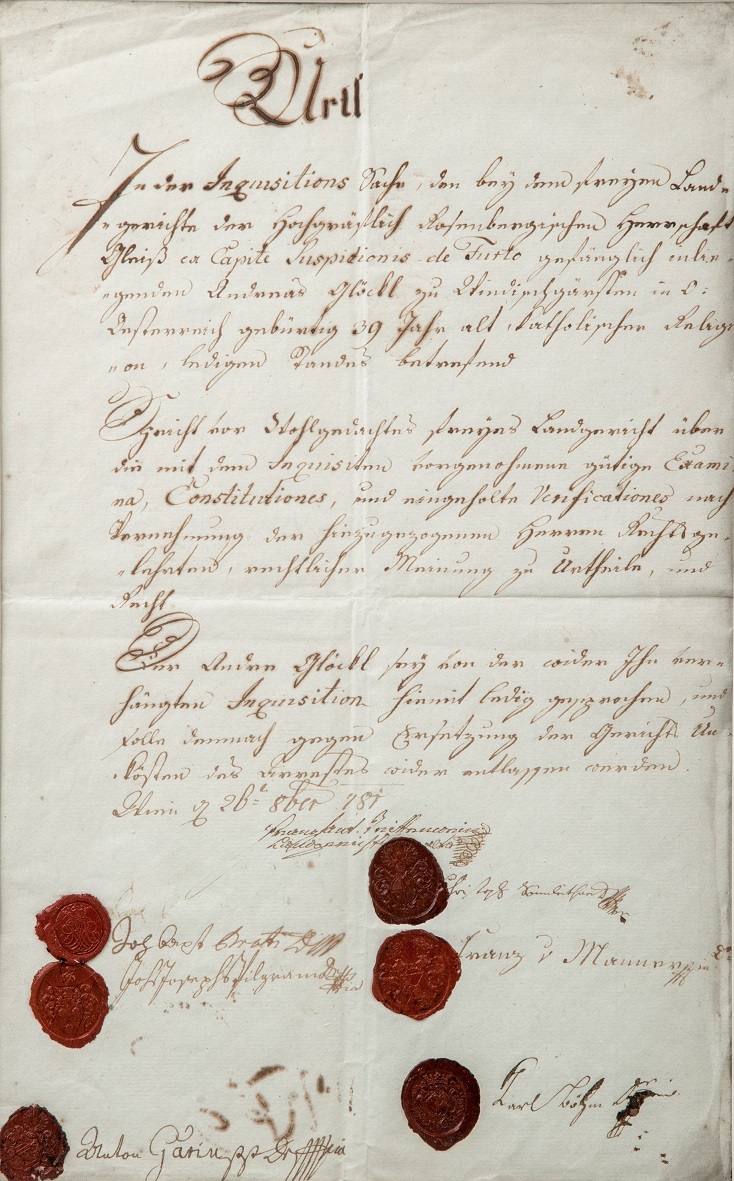 Urtl
In der Inquisitions Sache, den bey dem freyen Land=
=gerichte der Hochgräflich Rosenbergischen Herrschaft
Gleiß ex Capite Suspicionis de Furto gefänglich inlie=
=genden Andreas Glöckl zu Windischgärsten in O:
Oesterreich gebürtig 39 Jahr alt, katholischer Religi
=on, ledigen Standes betrefend
Spricht vor Wohlgedachtes freyes Landgericht über
die mit dem Inquisiten vorgenohmene gütige Exami
na, Constitutiones, und eingeholte Verificationes nach
Vernehmung der hinzugezogenen Herren Rechtsge=
=lehrten, rechtlicher Meinung zu Urtheile, und
Recht
Der Andre Glöckl sey von der wider Ihn ver=
hängten Inquisition hiemit ledig gesprochen, und
solle demnach gegen Ersetzung der Gerichts Un
kösten des Arrestes wider entlassen werden.
Wien d 26t 8ber
Franz
Joh bapt
Joh Joseph Pilgram
Franz v Manner
Karl Böhm
Anton